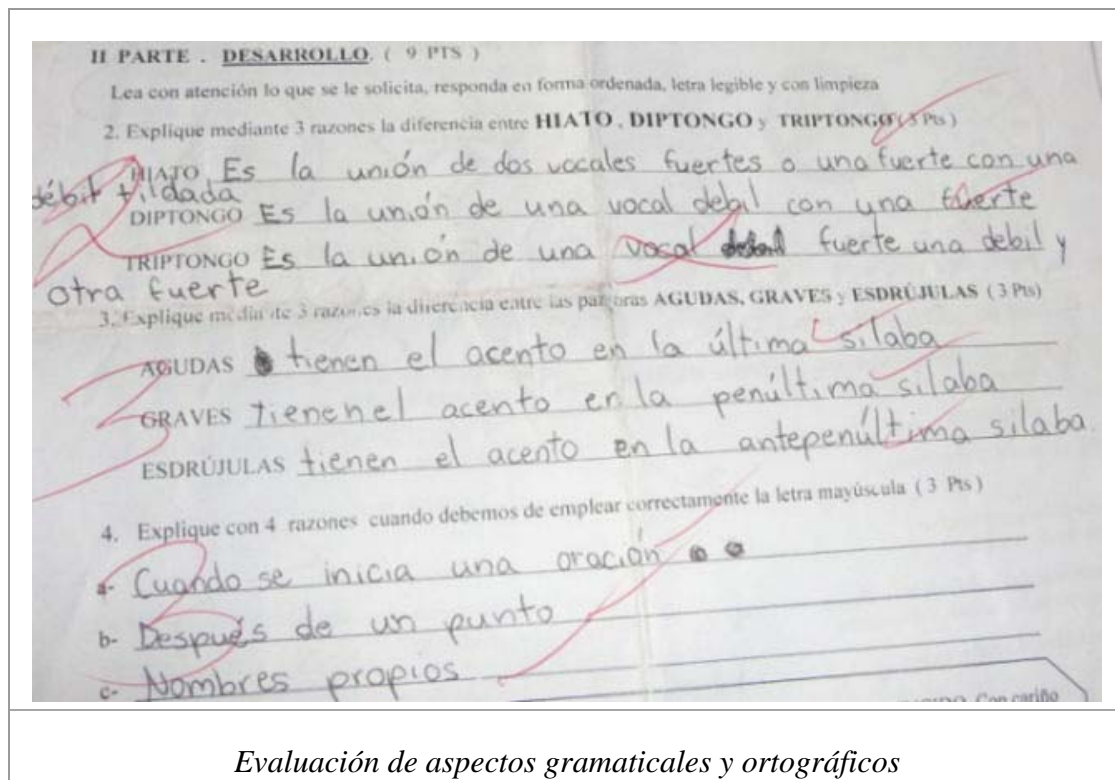 II PARTE . DESARROLLO. ( 9 PTS )
Lea con atención lo que se le solicita, responda en forma ordenada, letra legible y con limpieza
2. Explique mediante 3 razones la diferencia entre HIATO , DIPTONGO y TRIPTONGO ( 3 Pts )
HIATO Es la unión de dos vocales fuertes o una fuerte con una
débil tildada
DIPTONGO Es la unión de una vocal debil con una fuerte
TRIPTONGO Es la unión de una vocal fuerte una debil y
otra fuerte
3. Explique mediante 3 razones la diferencia entre las palabras AGUDAS, GRAVES y ESDRÚJULAS ( 3 Pts)
AGUDAS tienen el acento en la última sílaba
GRAVES Tienen el acento en la penúltima silaba
ESDRÚJULAS tienen el acento en la antepenúltima silaba.
4. Explique con 4 razones cuando debemos de emplear correctamente la letra mayúscula ( 3 Pts )
a- Cuando se inicia una oración
b- Después de un punto
c- Nombres propios
Con cariño
2
3
3
Evaluación de aspectos gramaticales y ortográficos